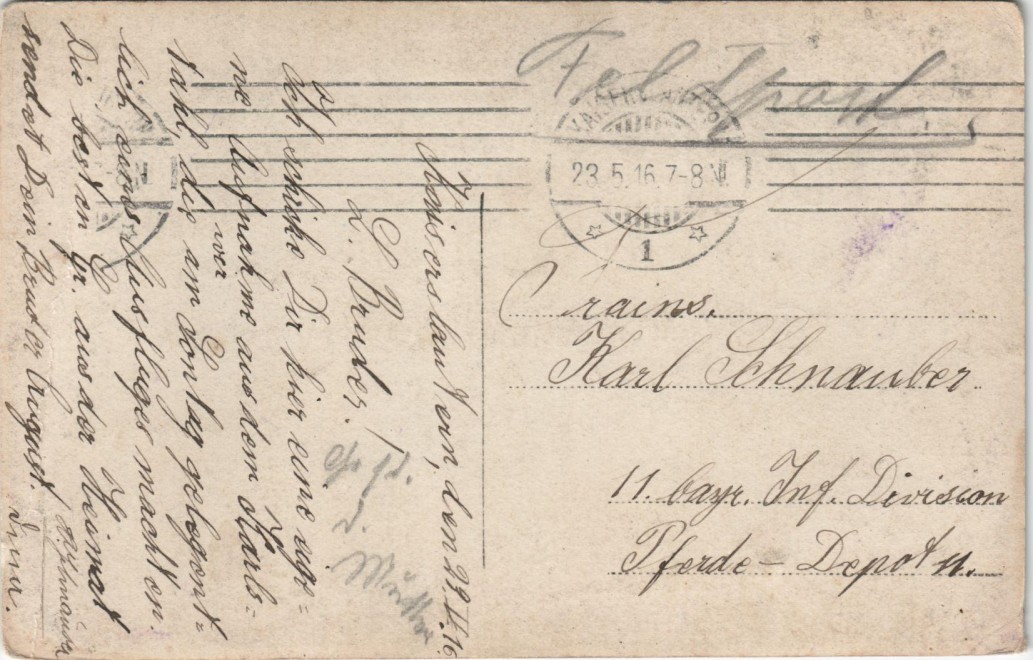 Feldpost.
KAISERSLAUTERN
23.5.16.7-8 N.
1
Kaiserslautern, den 23.V.16
L. Bruder!
Ich schicke Dir hier eine eige=
ne Aufnahme aus dem Karls=
tahl, die wir am Sontag gelegent=
lich eines Ausfluges machten.
Die besten Gr. aus der Heimat
sendet Dein Bruder August
Trains.
Karl Schnauber
11. bayr. Inf. Division
Pferde-Depot 11.